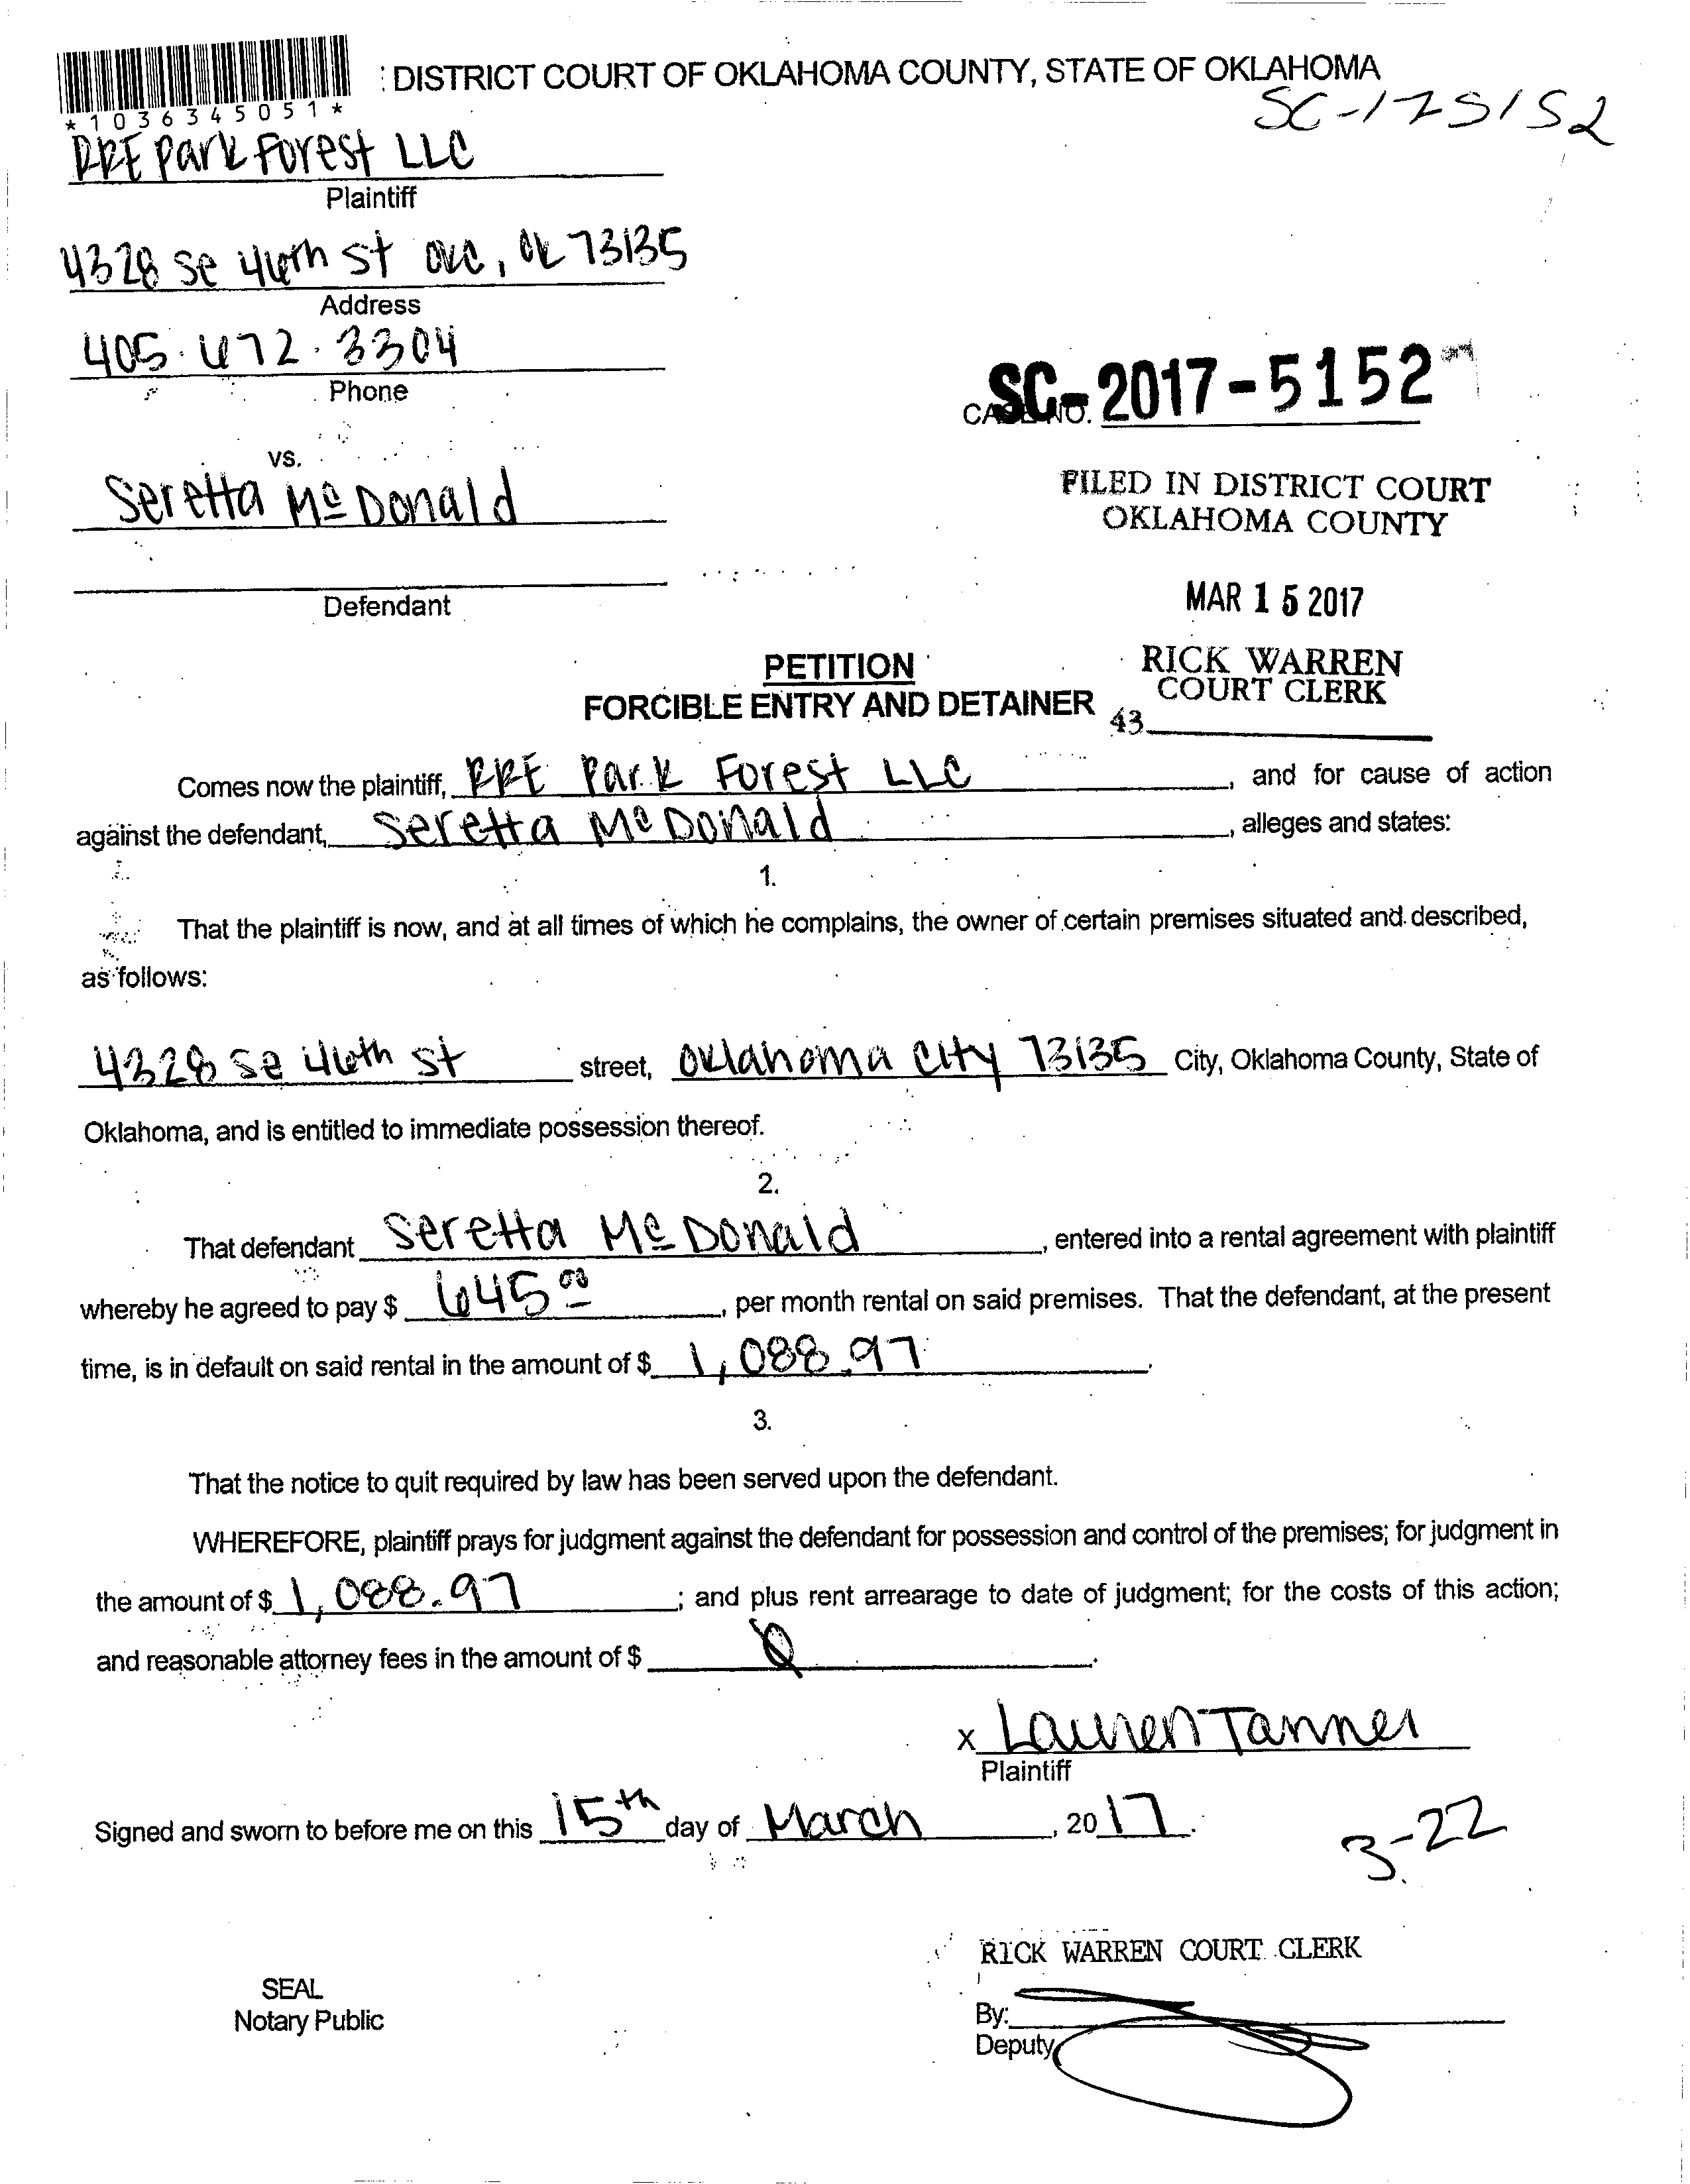 : DISTRICT COURT OF OKLAHOMA COUNTY, STATE OF OKLAHOMA
*1036345051*
SC-175152
RRE Park Forest LLC
Plaintiff
4328 se 46th st OKC, OK 73135
Address
405.672.3304
Phone
SC-2017-5152
CASE NO.
vs.
Seretta McDonald
FILED IN DISTRICT COURT
OKLAHOMA COUNTY
Defendant
MAR 15 2017
PETITION
RICK WARREN
COURT CLERK
FORCIBLE ENTRY AND DETAINER
43
Comes now the plaintiff, RRE Park Forest LLC, and for cause of action
against the defendant, Seretta McDonald, alleges and states:
1.
That the plaintiff is now, and at all times of which he complains, the owner of certain premises situated and described,
as follows:
4328 se 46th st street, Oklahoma City 73135 City, Oklahoma County, State of
Oklahoma, and is entitled to immediate possession thereof.
2.
That defendant Seretta McDonald, entered into a rental agreement with plaintiff
whereby he agreed to pay $ 645.00, per month rental on said premises. That the defendant, at the present
time, is in default on said rental in the amount of $ 1,088.97.
3.
That the notice to quit required by law has been served upon the defendant.
WHEREFORE, plaintiff prays for judgment against the defendant for possession and control of the premises; for judgment in
the amount of $ 1,088.97; and plus rent arrearage to date of judgment; for the costs of this action;
and reasonable attorney fees in the amount of $ 0.
x Lauren Tanner
Plaintiff
Signed and sworn to before me on this 15th day of March, 2017.
3-22
RICK WARREN COURT CLERK
SEAL
Notary Public
By:
Deputy